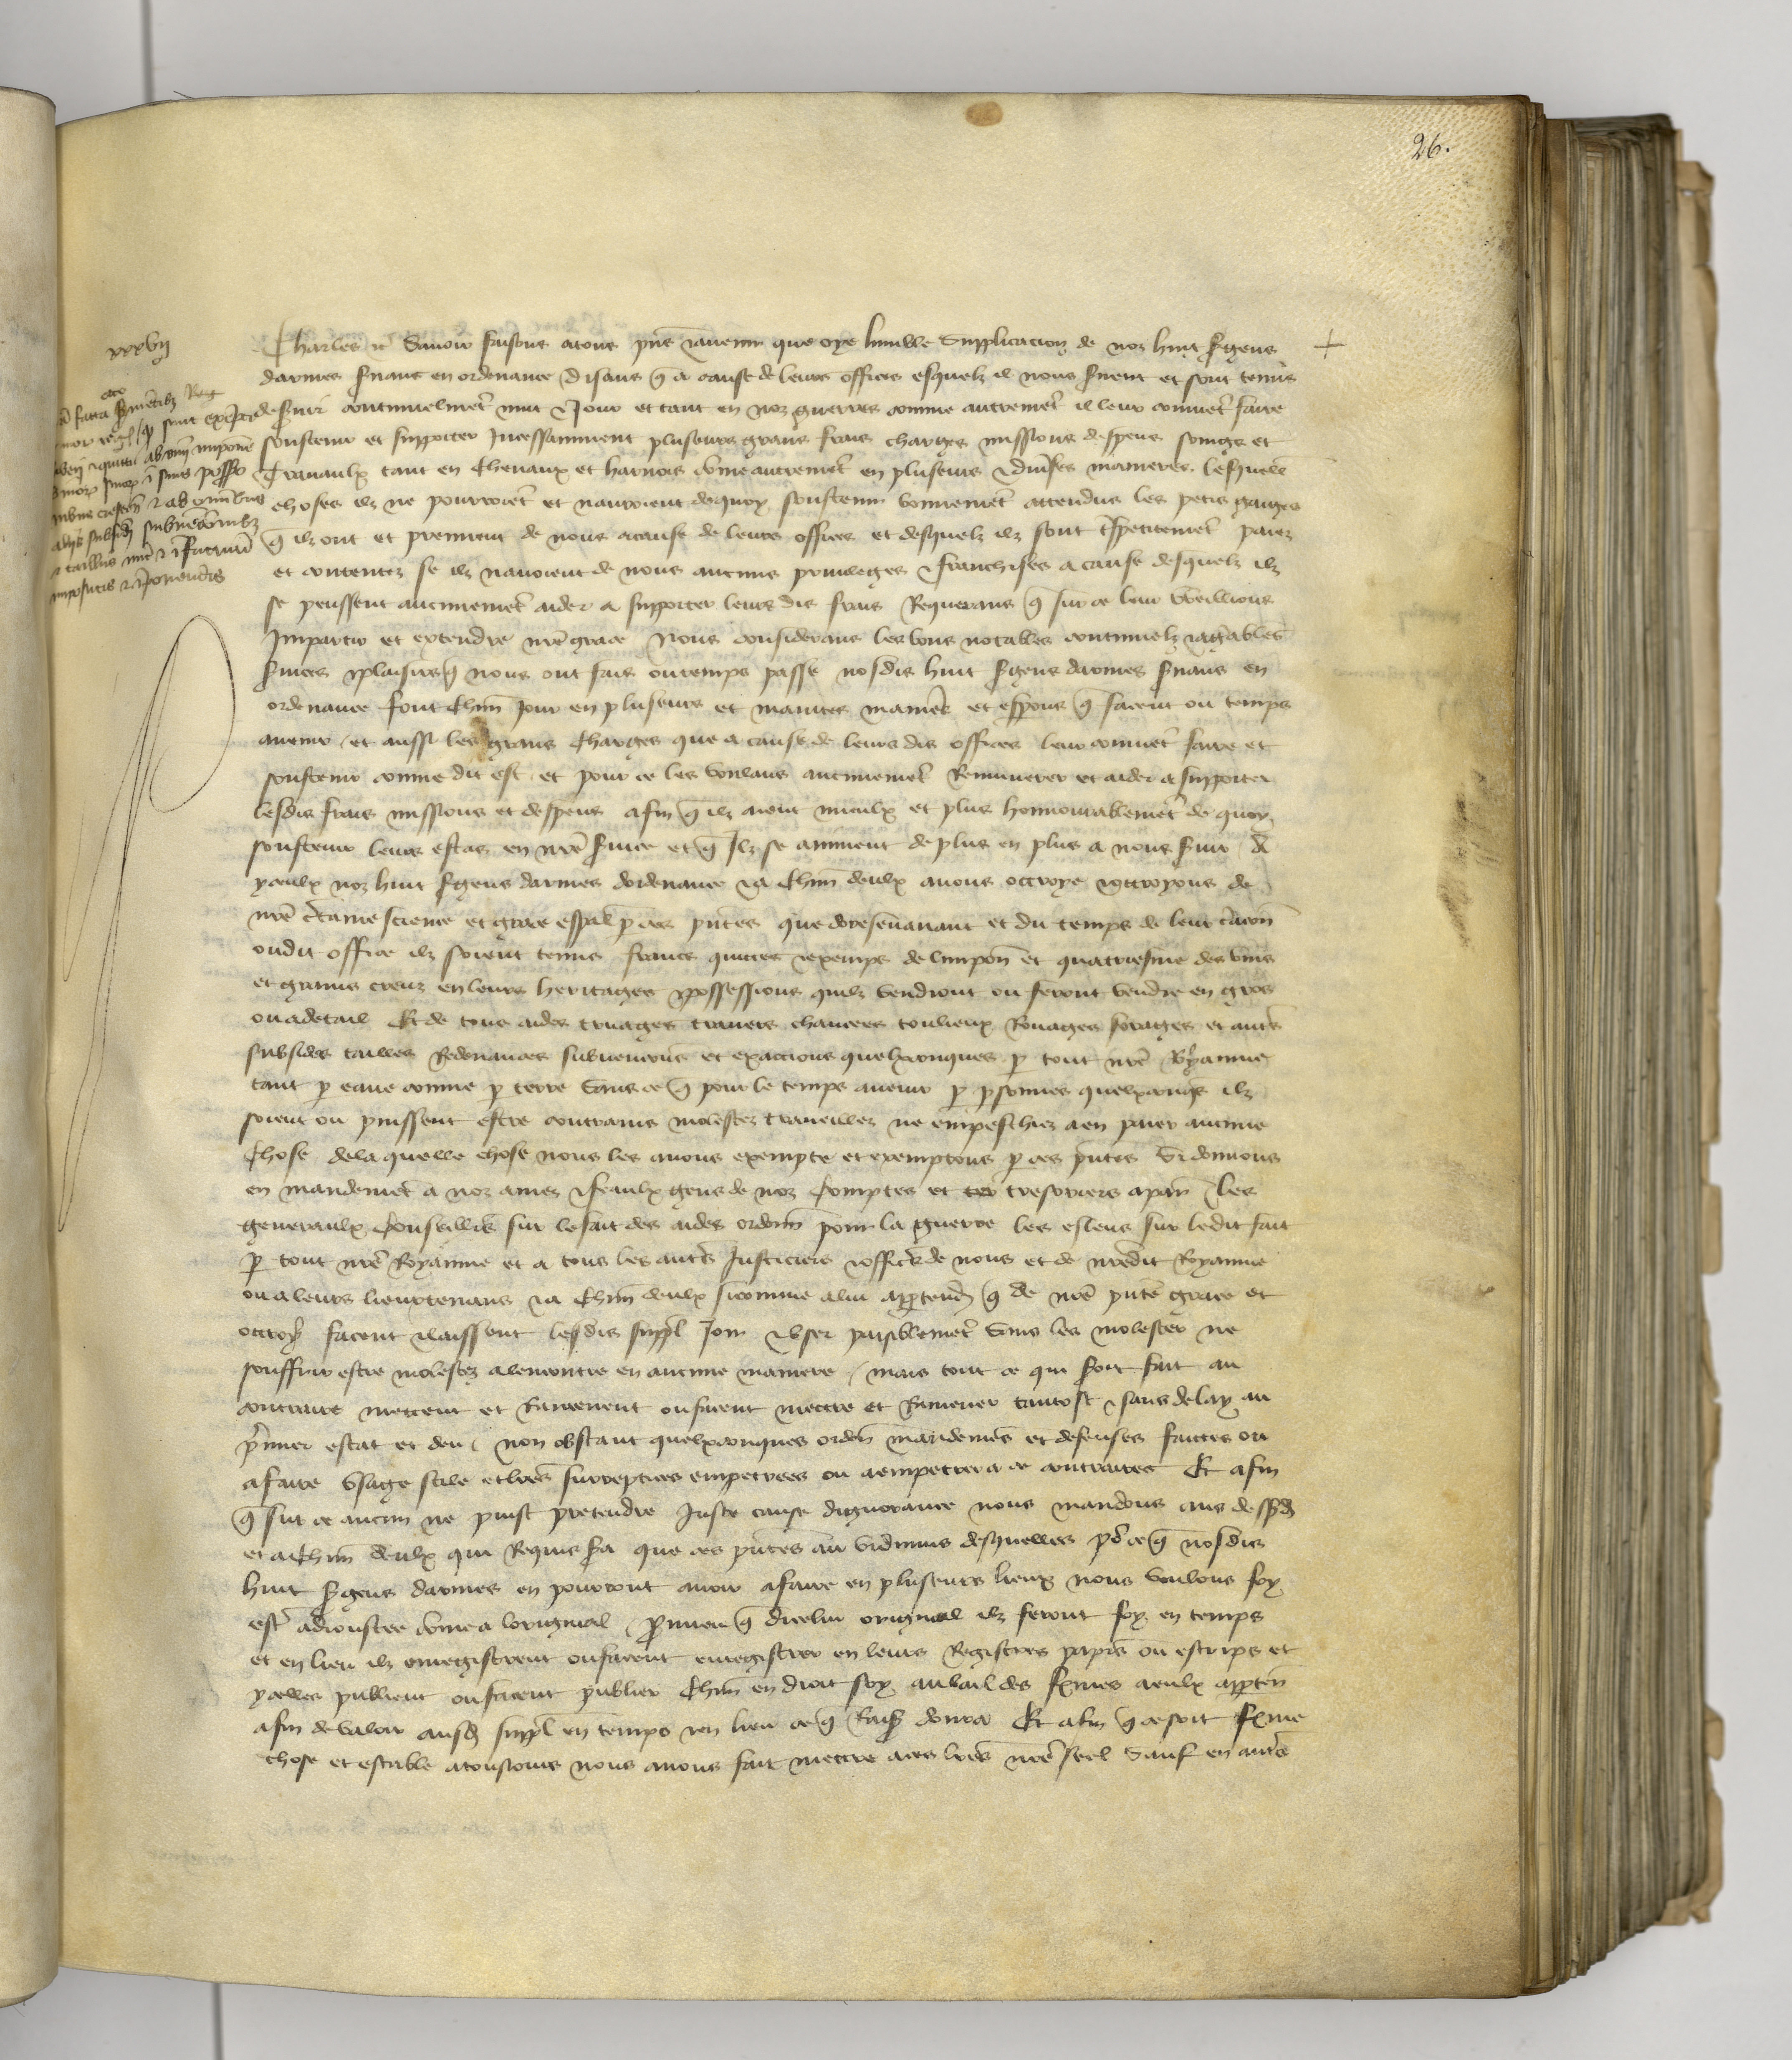 26.
xxxvii
Charles etc Savoir faisons a tous pñs et avenir que oye humble Supplicacion de noz huit sergens
darmes servans en ordenance disans q̃ a cause de leurs offices esquelz il nous servent et sont tenus
de servir continuelmẽt nuit et Jour et tant en noz guerres comme autremẽt il leur convient faire
soustenir et supporter Incessamment pluseurs grans frais charges missions despens soings et
Travaulx tant en Chevaux et harnois cõme autremẽt en pluseurs et diverses manieres. lesquelles
choses ilz ne pourroiẽt et nauroient dequoy soustenir bonnemẽt attendus les petis gaiges
q̃ ilz ont et prennent de nous a cause de leurs offices et desquelz ilz sont tres petitemẽt paiez
et contentez se ilz navoient de nous aucuns privileges et franchises a cause desquelz ilz
se peussent aucunemẽt aider a supporter leurs dis frais Requerans q̃ sur ce leur vueillions
Impartir et extendre nr̃e grace Nous considerans les bons notables continuelz et agreables
services et plaisirs q̃ nous ont fais ou temps passe nosdis huit sergens darmes servans en
ordenance font Chũn Jour en pluseurs et maintes manieres et esperons q̃ facent ou temps
avenir et aussi les grans Charges que a cause de leurs dis offices leur convient faire et
soustenir comme dit est et pour ce les voulans aucunemẽt Remunerer et aider a supporter
lesdis frais missions et despens afin q̃ ilz aient mieulx et plus honnourablemẽt de quoy
soustenir leurs estas en nr̃e service et q̃ Ilz se animent de plus en plus a nous servir A
yceulx noz huit sergens darmes dordenance et a Chũn deulx avons octroye et octroyons de
nr̃e certaine science et grace espãl p ces pñtes que doresenavant et du temps de leur creacion
oudit office ilz soient tenus francs quittes et exemps de limposiõn et quatriesme des vins
et grains creuz en leurs heritages et possessions quilz vendront ou feront vendre en gros
ou a detail Et de tous aides truages travers chaucees toulieux Rouages forages et autres
subsides tailles Redevances subvencions et exaccions quelxconques p tout nr̃e Royaume
tant p eaue comme p terre Sans ce q̃ pour le temps avenir p personnes quelxconqs ilz
soient ou puissent estre contrains molestez travueillez ne empeschiez a en paier aucune
Chose de la quelle chose nous les avons exempte et exemptons p ces pñtes Si donnons
en mandemẽt a noz amez et feaulx gens de noz Comptes et tresoriers a paris Les
generaulx Conseillers sur le fait des aides ordenn pour la guerre les esleus sur ledit fait
p tout nr̃e Royaume et a tous les autres Justiciers et officiers de nous et de nr̃edit Royaume
ou a leurs lieuxtenans et a Chũn deulx sicomme a lui appartendra q̃ de nr̃e pñte grace et
octroy facent et laissent lesdis suppl Joir et user paisiblemẽt Sans les molester ne
souffrir estre molestez a lencontre en aucune maniere mais tout ce qui seroit fait au
contraire mettent et Ramenent ou facent mettre et Ramener tantost et sans delay au
premier estat et deu non obstant quelxconques orden mandemẽs et defenses faittes ou
a faire usage stile et lr̃es surreptices empetrees ou a empetrer a ce contraires Et afin
q̃ sur ce aucun ne puist pretendre Juste cause dignorance nous mandons aus dessusdis
et a Chũn deulx qui Requis sera que ces pñtes au vidimus desquelles pour ce q̃ nosdis
huit sergens darmes en pourront avoir a faire en pluseurs lieux nous voulons foy
estre adioustee cõme a loriginal, p ainsi q̃ dicelui original ilz feront foy en temps
et en lieu ilz enregistrent ou facent enregistrer en leurs Registres papiers ou escrips et
ycelles publient ou facent publier Chũn en droit soy au bail des fermes a eulx apparten
afin de valoir ausdis suppl en temps et en lieu ce q̃ Raison donra Et afin q̃ ce soit ferme
chose et estable a tousiours nous avons fait mettre a ces lr̃es nr̃e seel Sauf en autres